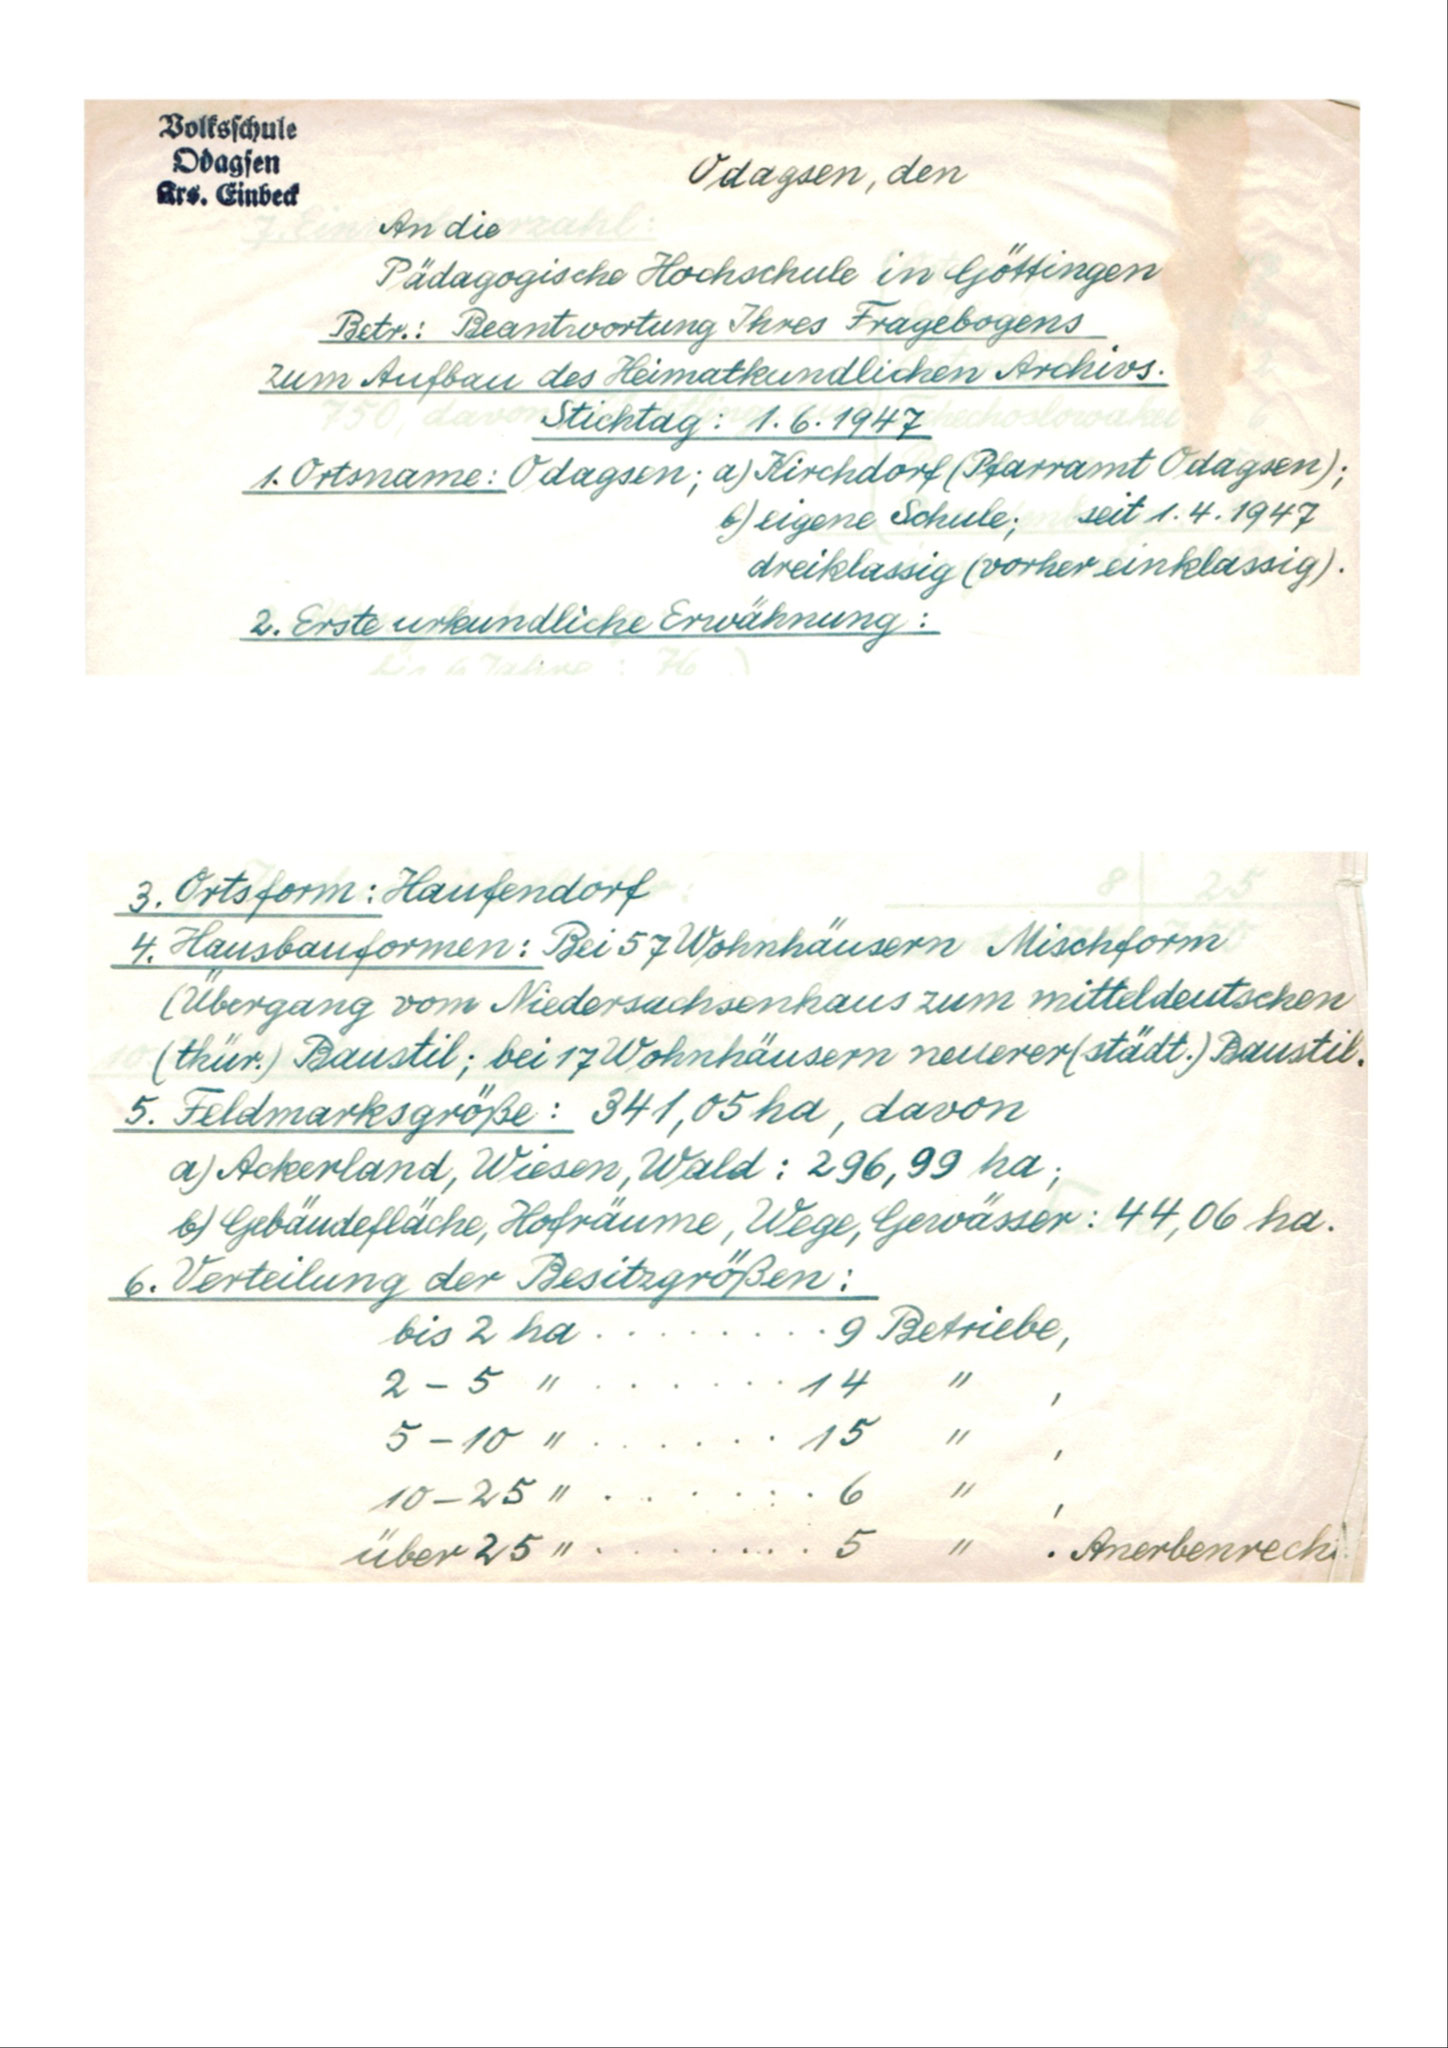 Volksschule
Odagsen
Krs. Einbeck
Odagsen, den
An die
Pädagogische Hochschule in Göttingen
Betr.: Beantwortung Ihres Fragebogens
zum Aufbau des Heimatkundlichen Archivs.
Stichtag: 1.6.1947
1. Ortsname: Odagsen; a) Kirchdorf (Pfarramt Odagsen);
b) eigene Schule; seit 1.4.1947
dreiklassig (vorher einklassig).
2. Erste urkundliche Erwähnung:
3. Ortsform: Haufendorf
4. Hausbauformen: Bei 57 Wohnhäusern Mischform
(Übergang vom Niedersachsenhaus zum mitteldeutschen
(thür.) Baustil; bei 17 Wohnhäusern neuerer (städt.) Baustil.
5. Feldmarksgröße: 341,05 ha, davon
a) Ackerland, Wiesen, Wald: 296,99 ha;
b) Gebäudefläche, Hofräume, Wege, Gewässer: 44,06 ha.
6. Verteilung der Besitzgrößen:
bis 2 ha . . . . . . . . . 9 Betriebe,
2 – 5 " . . . . . . . 14 " ,
5 – 10 " . . . . . . . 15 " ,
10 – 25 " . . . . . . . 6 " ,
über 25 " . . . . . . . . 5 " . Anerbenrecht